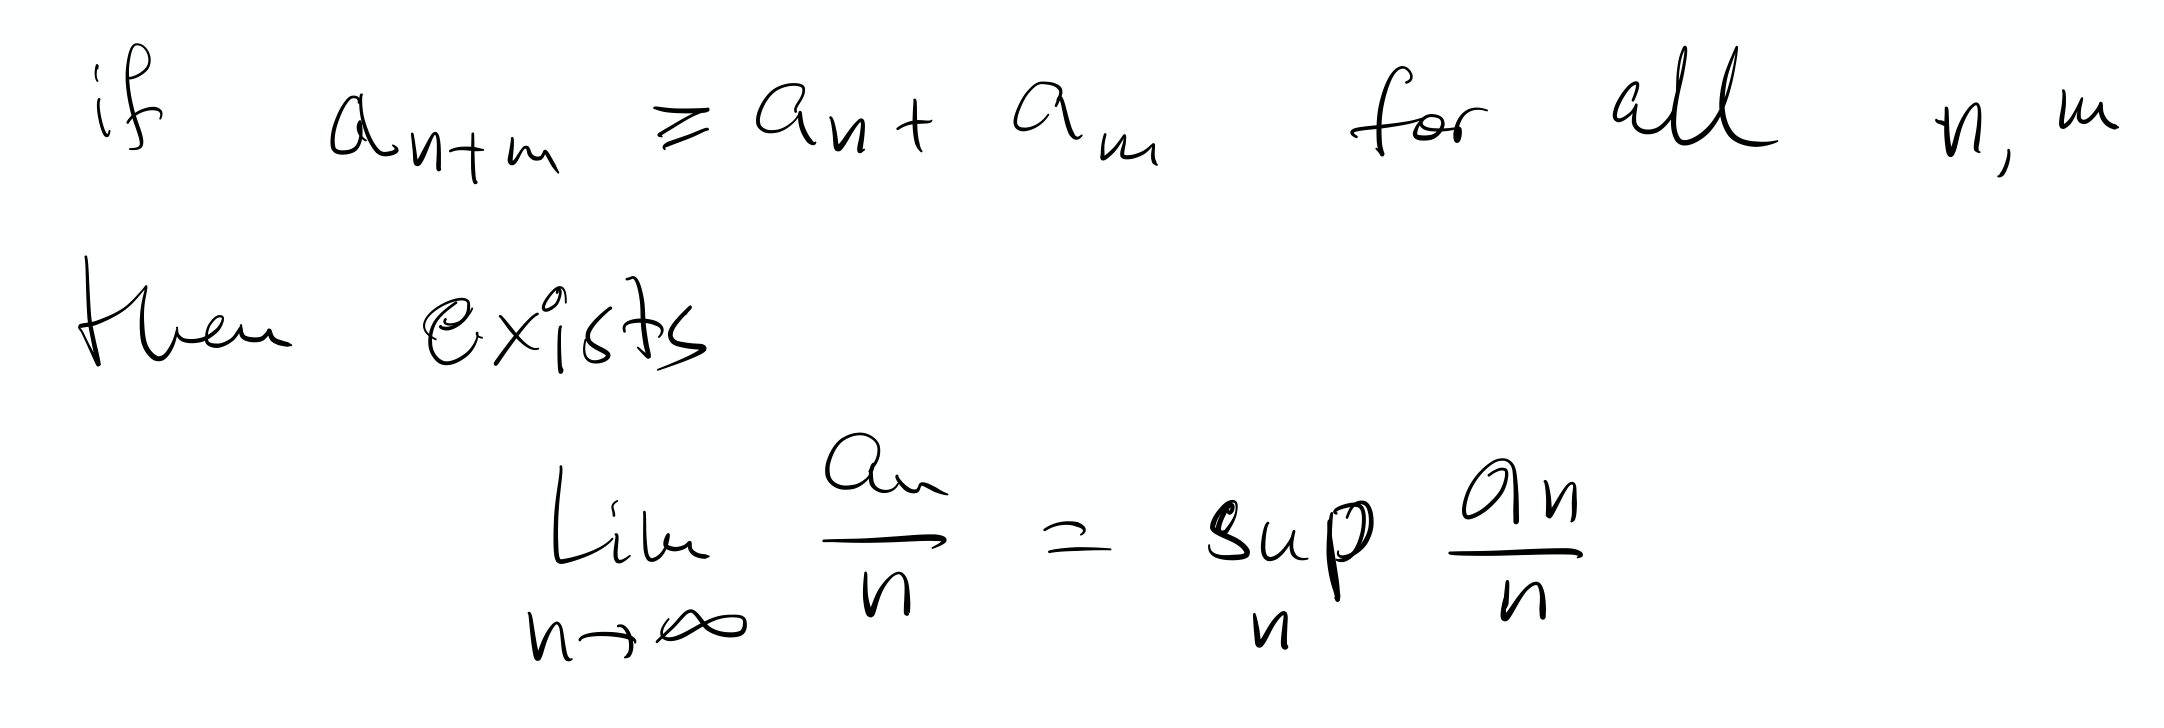 if a_{n+m} ⩾ a_n + a_m for all n, m
then exists
Lim_{n→∞} \frac{a_n}{n} = sup_n \frac{a_n}{n}